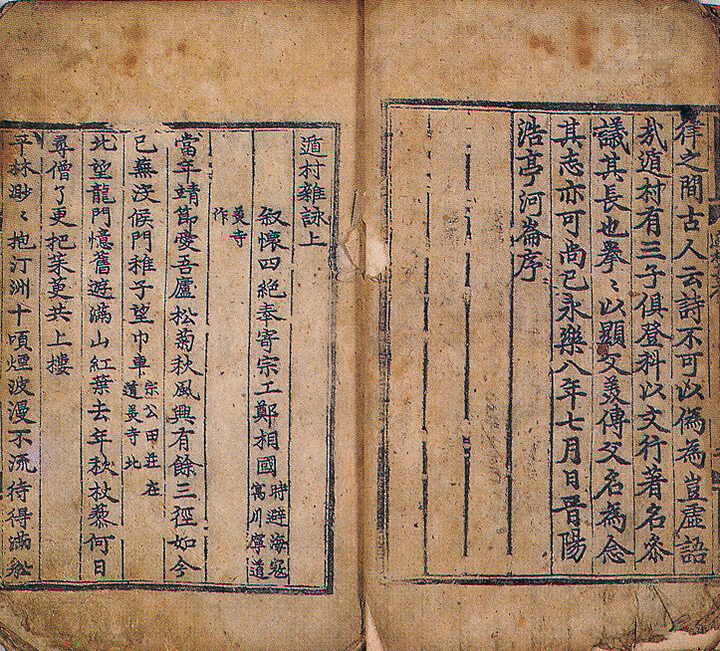 律之間古人云詩不可以僞為豈虛語
㢤遁村有三子俱登科以文行著名叅
議其長也拳〻以顯父美傳父名為念
其志亦可尚已永樂八年七月日晋陽
浩亭河崙序
遁村雜詠上
叙懷四絶奉寄宗工鄭相國時避海冦
寓川寧道
美寺
作
當年靖節愛吾廬松菊秋風興有餘三徑如今
已蕪沒候門稚子望巾車宗公田莊在
道美寺北
北望龍門憶舊遊滿山紅葉去年秋杖藜何日
尋僧了更把茱萸共上樓
平林渺〻抱汀洲十頃煙波漫不流待得滿船